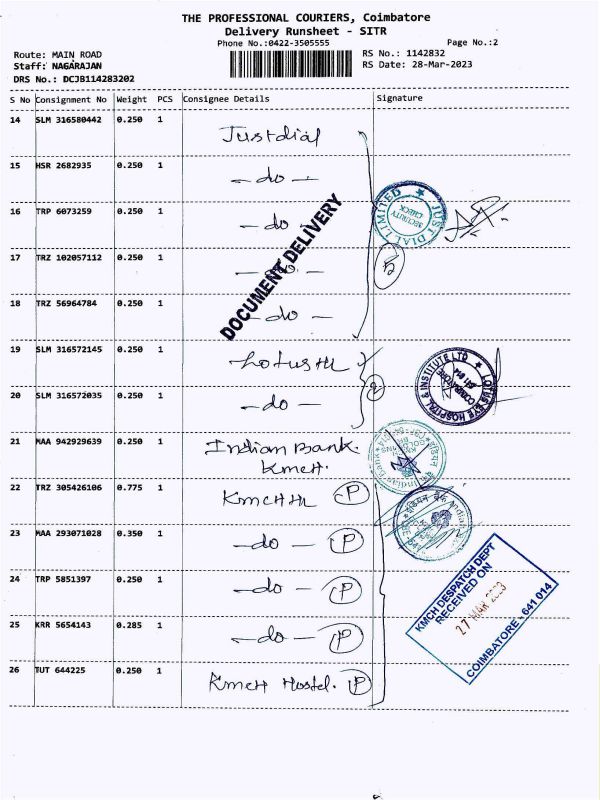 THE PROFESSIONAL COURIERS, Coimbatore
Delivery Runsheet - SITR
Phone No.:0422-3505555
Page No.:2
Route: MAIN ROAD
RS No.: 1142832
Staff: NAGARAJAN
RS Date: 28-Mar-2023
DRS No.: DCJB114283202
S No Consignment No Weight PCS Consignee Details Signature
14 SLM 316580442 0.250 1 Justdial
15 HSR 2682935 0.250 1 - do -
16 TRP 6073259 0.250 1 - do -
JUST DIAL LIMITED
SECURITY CHECK
17 TRZ 102057112 0.250 1 - do -
5
DOCUMENT DELIVERY
18 TRZ 56964784 0.250 1 - do -
19 SLM 316572145 0.250 1 Lotus HL
LOTUS EYE HOSPITAL & INSTITUTE LTD
COIMBATORE
641 014
20 SLM 316572035 0.250 1 - do -
2
21 MAA 942929639 0.250 1 Indian Bank.
KMCH.
22 TRZ 305426106 0.775 1 KMCH HL P
23 MAA 293071028 0.350 1 - do - P
24 TRP 5851397 0.250 1 - do - P
KMCH DESPATCH DEPT
RECEIVED ON
27 MAR 2023
COIMBATORE - 641 014
25 KRR 5654143 0.285 1 - do - P
26 TUT 644225 0.250 1 KMCH Hostel. P